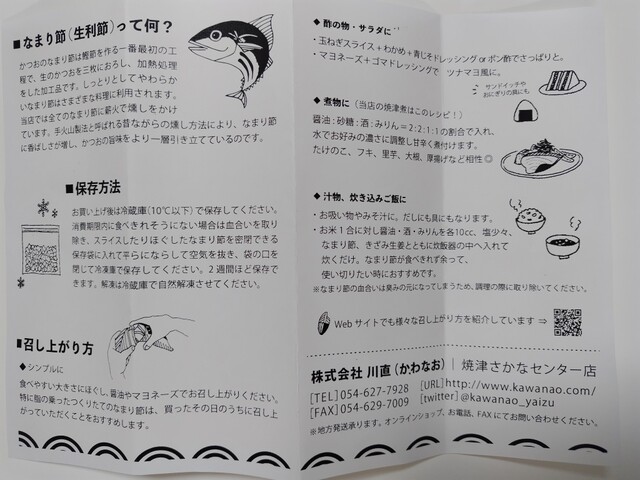 ■なまり節（生利節）って何？
かつおのなまり節は鰹節を作る一番最初の工
程で、生のかつおを三枚におろし、加熱処理
をした加工品です。しっとりとしてやわらか
いなまり節はさまざまな料理に利用されます。
当店では全てのなまり節に薪火で燻しをかけ
ています。手火山製法と呼ばれる昔ながらの燻し方法により、なまり節
に香ばしさが増し、かつおの旨味をより一層引き立てているのです。
■保存方法
お買い上げ後は冷蔵庫（10℃以下）で保存してください。
消費期限内に食べきれそうにない場合は血合いを取り
除き、スライスしたりほぐしたなまり節を密閉できる
保存袋に入れて平らにならして空気を抜き、袋の口を
閉じて冷凍庫で保存してください。2週間ほど保存で
きます。解凍は冷蔵庫で自然解凍させてください。
■召し上がり方
◆シンプルに
食べやすい大きさにほぐし、醤油やマヨネーズでお召し上がりください。
特に脂の乗ったつくりたてのなまり節は、買ったその日のうちに召し上
がっていただくことをおすすめします。
◆酢の物・サラダに
・玉ねぎスライス＋わかめ＋青じそドレッシング or ポン酢でさっぱりと。
・マヨネーズ＋ゴマドレッシングで ツナマヨ風に。
サンドイッチや
おにぎりの具にも
◆煮物に（当店の焼津煮はこのレシピ！）
醤油：砂糖：酒：みりん＝2：2：1：1の割合で入れ、
水でお好みの濃さに調整し甘辛く煮付けます。
たけのこ、フキ、里芋、大根、厚揚げなど相性◎
◆汁物、炊き込みご飯に
・お吸い物やみそ汁に。だしにも具にもなります。
・お米1合に対し醤油・酒・みりんを各10cc、塩少々、
なまり節、きざみ生姜とともに炊飯器の中へ入れて
炊くだけ。なまり節が食べきれず余って、
使い切りたい時におすすめです。
※なまり節の血合いは臭みの元になってしまうため、調理の際に取り除いてください。
Webサイトでも様々な召し上がり方を紹介しています ⇒
株式会社 川直（かわなお）｜焼津さかなセンター店
[TEL] 054-627-7928 [URL] http://www.kawanao.com/
[FAX] 054-629-7009 [twitter] @kawanao_yaizu
※地方発送承ります。オンラインショップ、お電話、FAXにてお問い合わせください。